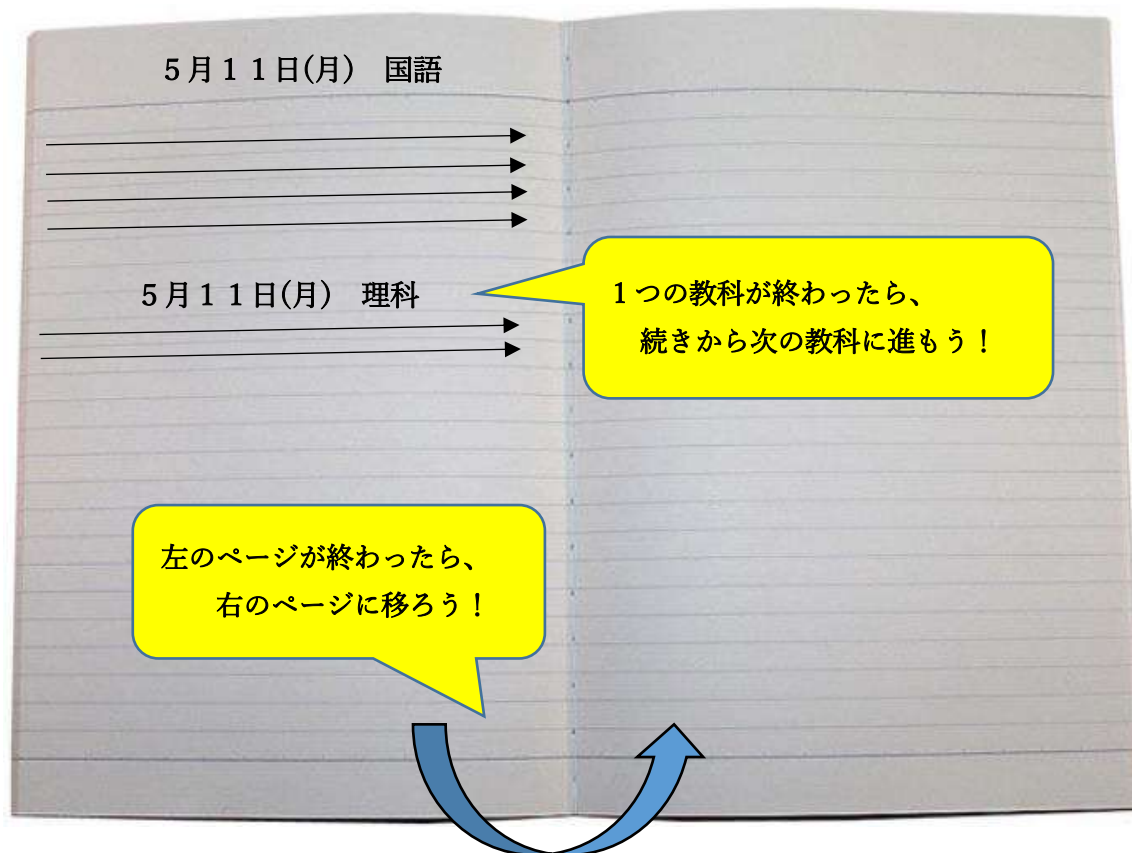 5月11日(月) 国語
5月11日(月) 理科
1つの教科が終わったら、
続きから次の教科に進もう！
左のページが終わったら、
右のページに移ろう！